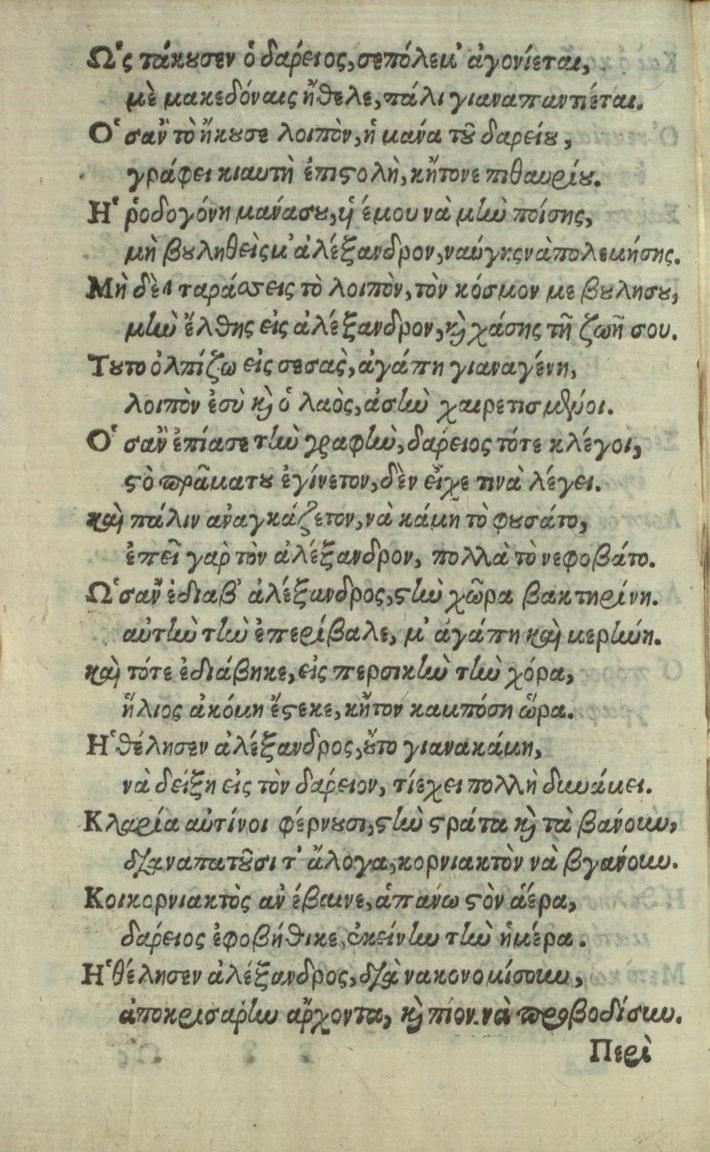 Ὡς τἄκουσεν ὁ δαρέιος, σεπόλεμ' ἀγονίεται,
μὲ μακεδόναις ἤθελε, πάλι γιαναπαντιέται.
Ὁ σαν τὸ ἤκουσε λοιπὸν, ἡ μάνα τοῦ δαρείου,
γράφει κιαυτὴ ἐπιστολὴ, κήτονε πιθαυρίου.
Ἡ ῥοδογόνη μάνασου, ἡ ἐμου νὰ μὴν ποίσης,
μὴ βουληθεὶς μ' ἀλέξανδρον, ναύγης νὰπολεμήσης.
Μὴ δὲν ταράσσεις τὸ λοιπὸν, τὸν κόσμον με βουλησου,
μὴν ἔλθης εἰς ἀλέξανδρον, καὶ χάσης τῆ ζωῆ σου.
Τουτο ὀλπίζω εἰς σεσας, ἀγάπη γιαναγένη,
λοιπὸν ἐσὺ καὶ ὁ λαὸς, ἀστὴν χαιρετισμένοι.
Ὁ σὰν ἐπίασε τὴν γραφὴν, δαρέιος τότε κλέγοι,
στὸ πρᾶματου ἐγίνετον, δὲν εἶχε τινὰ λέγει.
καὶ πάλιν ἀναγκάζετον, νὰ κάμη τὸ φουσάτο,
ἐπεῖ γαρ τὸν ἀλέξανδρον, πολλὰ τὸ νεφοβάτο.
Ὡ σαν ἐδιαβ' ἀλέξανδρος, στὴν χῶρα βακτηρίνη.
αὐτὴν τὴν ἐπερίβαλε, μ' ἀγάπη καὶ μερὴνη.
καὶ τότε ἐδιάβηκε, εἰς περσικὴν τὴν χόρα,
ἥλιος ἀκόμη ἔστεκε, κῆτον καμπόση ὥρα.
Ἡ θέλησεν ἀλέξανδρος, οὕτο γιανακάμη,
νὰ δείξη εἰς τὸν δαρέιον, τίεχει πολλὴ δυνάμει.
Κλαρία αὐτίνοι φέρνουσι, στὴν στράτα καὶ τὰ βάνουν,
διὰ ναπατοῦσι τ' ἄλογα, κορνιακτὸν νὰ βγάνουν.
Κοικορνιακτὸς αν ἐβαινε, ἀπάνω στὸν ἀέρα,
δαρέιος ἐφοβήθικε, ἐκείνην τὴν ἡμέρα.
Ἡ θέλησεν ἀλέξανδρος, διὰ νακονομίσουν,
ἀποκρισαρην ἄρχοντα, καὶ πίον. νὰ προβοδίσουν.
Περὶ